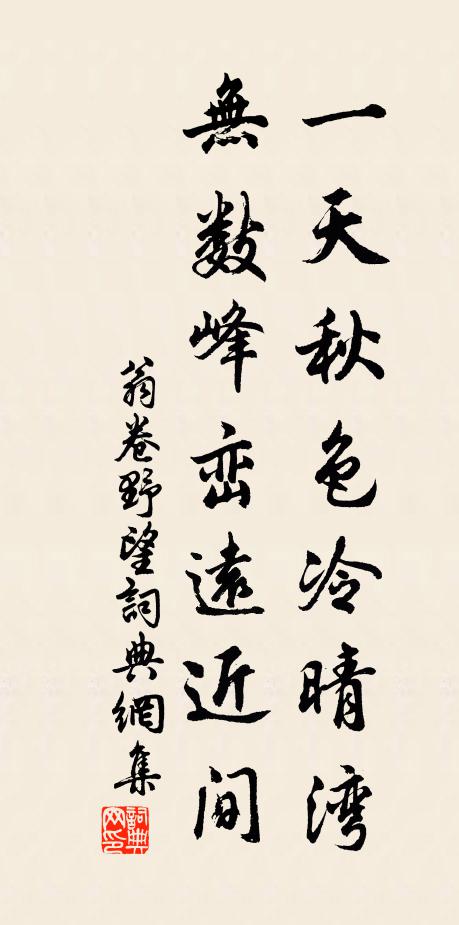 一天秋色冷晴湾
無数峰峦遠近间
翁卷野望詞典網集
詞典网印